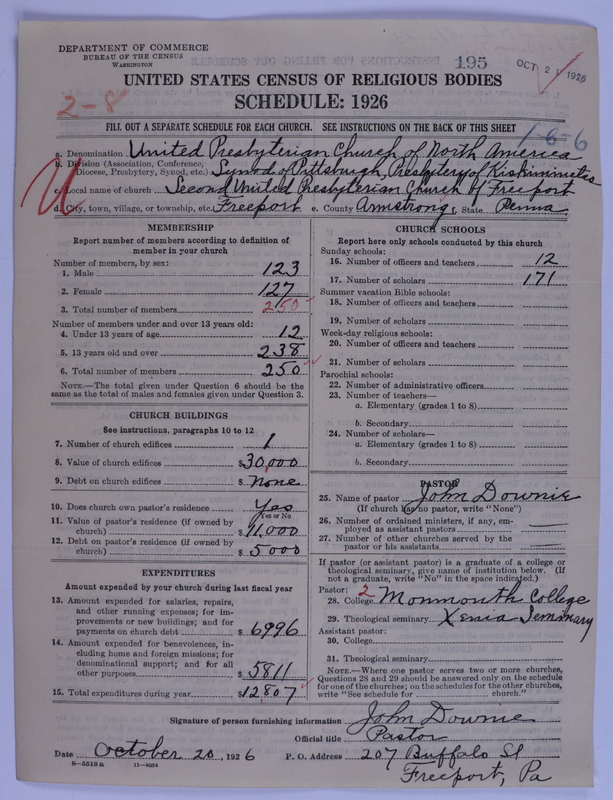 DEPARTMENT OF COMMERCE
BUREAU OF THE CENSUS
WASHINGTON
195
OCT 21 1926
UNITED STATES CENSUS OF RELIGIOUS BODIES
2-8
SCHEDULE: 1926
FILL OUT A SEPARATE SCHEDULE FOR EACH CHURCH. SEE INSTRUCTIONS ON THE BACK OF THIS SHEET
1-6-6
a. Denomination United Presbyterian Church of North America
b. Division (Association, Conference, Diocese, Presbytery, Synod, etc.) Synod of Pittsburgh, Presbytery of Kiskiminetis
c. Local name of church Second United Presbyterian Church of Freeport
d. City, town, village, or township, etc. Freeport e. County Armstrong, State Penna.
MEMBERSHIP
Report number of members according to definition of
member in your church
Number of members, by sex:
1. Male 123
2. Female 127
3. Total number of members 250
Number of members under and over 13 years old:
4. Under 13 years of age 12
5. 13 years old and over 238
6. Total number of members 250
NOTE.—The total given under Question 6 should be
same as the total of males and females given under Question 3.
CHURCH BUILDINGS
See instructions, paragraphs 10 to 12
7. Number of church edifices 1
8. Value of church edifices $30,000
9. Debt on church edifices $ None
10. Does church own pastor's residence Yes
Yes or No
11. Value of pastor's residence (if owned by
church) $11,000
12. Debt on pastor's residence (if owned by
church) $5000
EXPENDITURES
Amount expended by your church during last fiscal year
13. Amount expended for salaries, repairs,
and other running expenses; for im-
provements or new buildings; and for
payments on church debt $6996
14. Amount expended for benevolences, in-
cluding home and foreign missions; for
denominational support; and for all
other purposes $5811
15. Total expenditures during year $12807
CHURCH SCHOOLS
Report here only schools conducted by this church
Sunday schools:
16. Number of officers and teachers 12
17. Number of scholars 171
Summer vacation Bible schools:
18. Number of officers and teachers
19. Number of scholars
Week-day religious schools:
20. Number of officers and teachers
21. Number of scholars
Parochial schools:
22. Number of administrative officers
23. Number of teachers—
a. Elementary (grades 1 to 8)
b. Secondary
24. Number of scholars—
a. Elementary (grades 1 to 8)
b. Secondary
PASTOR
25. Name of pastor John Downie
(If church has no pastor, write "None")
26. Number of ordained ministers, if any, em-
ployed as assistant pastors
27. Number of other churches served by the
pastor or his assistants
If pastor (or assistant pastor) is a graduate of a college or
theological seminary, give name of institution below. (If
not a graduate, write "No" in the space indicated.)
Pastor: 2
28. College Monmouth College
29. Theological seminary Xenia Seminary
Assistant pastor:
30. College
31. Theological seminary
NOTE.—Where one pastor serves two or more churches,
Questions 28 and 29 should be answered only on the schedule
for one of the churches; on the schedules for the other churches,
write "See schedule for church."
Signature of person furnishing information John Downie
Official title Pastor
Date October 20, 1926 P. O. Address 207 Buffalo St
8-5518a 11-9034
Freeport, Pa